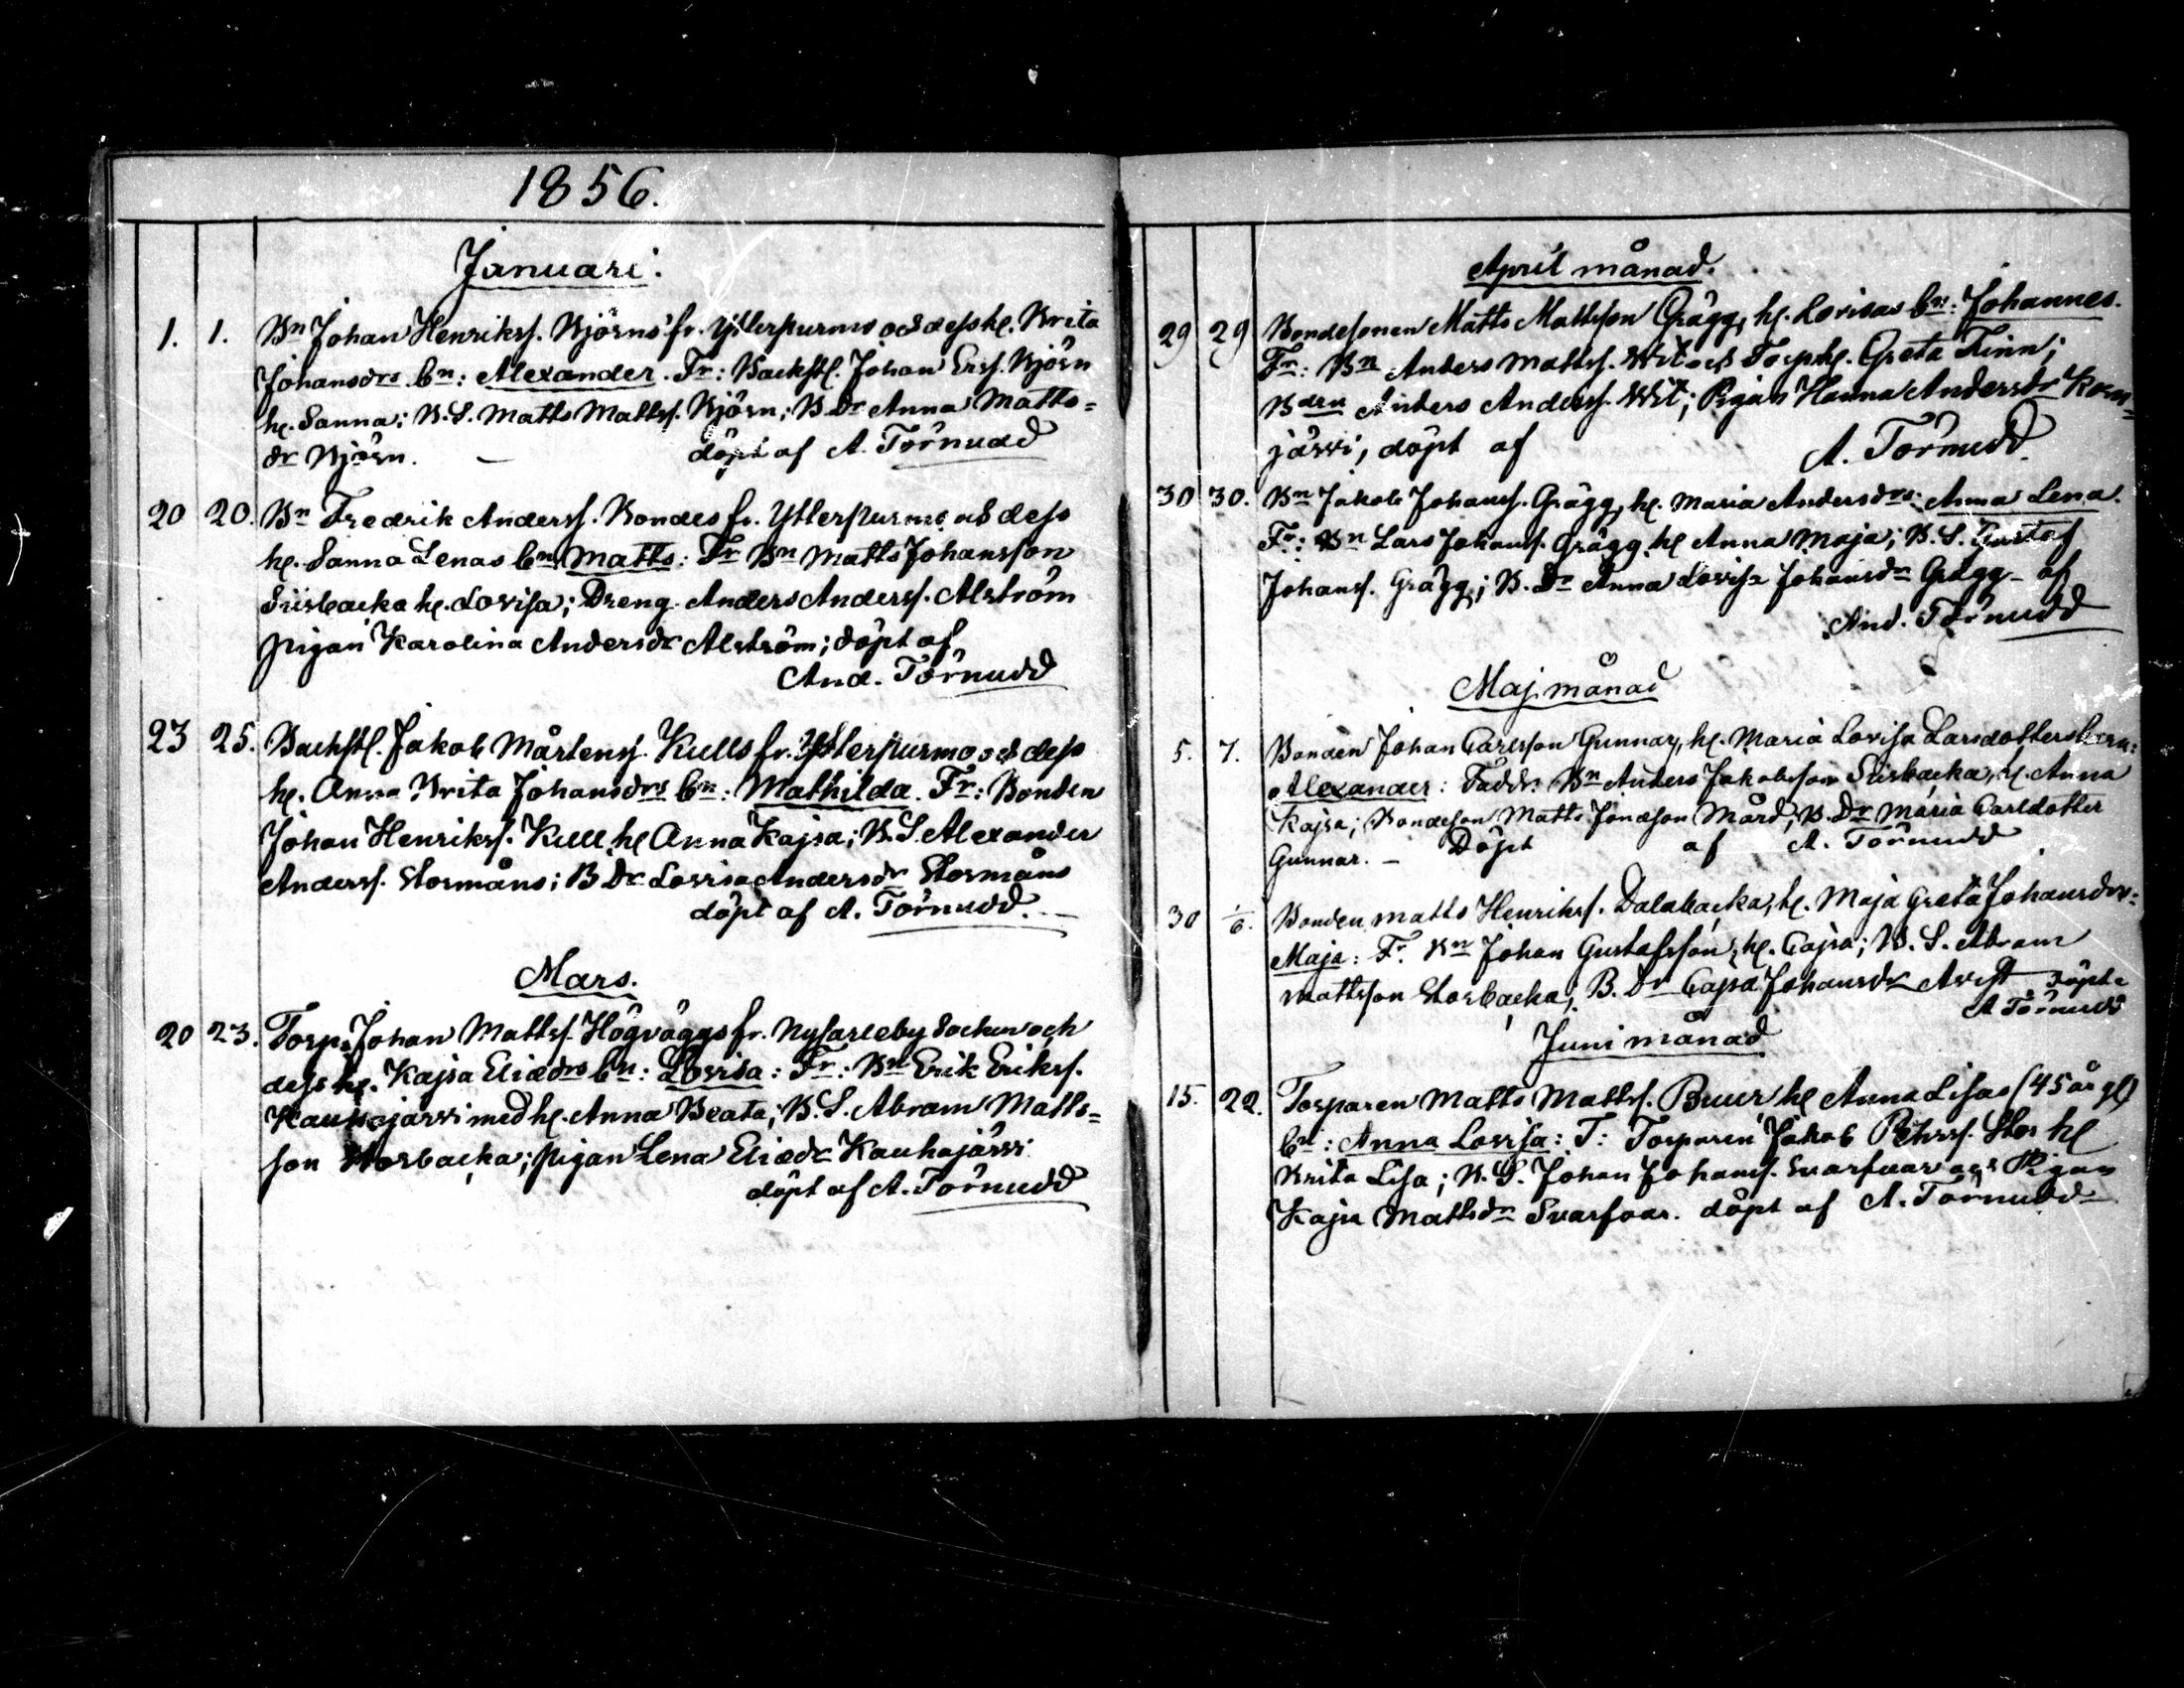 1856.
Januari.
1. 1. Bn Johan Henrikss. Björns fr. Ytterpurmo och dess h. Brita
Johansdrs bn: Alexander. Fr: Backst. Johan Erss. Björn
h. Sanna; B.S. Matts Mattss. Björn; B. Dr Anna Matts=
dr Björn. – döpt af A. Törnudd
20 20. Bn Fredrik Anderss. Bondes fr. Ytterpurmo och dess
h. Sanna Lenas bn Matts: Fr Bn Matts Johansson
Sisbacka h. Lovisa; Dreng Anders Anderss. Alström
pigan Karolina Andersdr Alström; döpt af
And. Törnudd
23 25. Backst. Jakob Mårtenss. Kulls fr. Ytterpurmo och dess
h. Anna Brita Johansdrs bn: Mathilda. Fr: Bonden
Johan Henrikss. Kull, h Anna Kajsa; B.S. Alexander
Anderss. Stormåns; B Dr Lovisa Andersdr Stormåns
döpt af A. Törnudd. –
Mars.
20 23. Torp. Johan Mattss. Högväggs fr. Nykarleby Socken och
dess h. Kajsa Eliædrs bn: Lovisa: Fr: Bn Erik Erikss.
Kauhajärvi med h. Anna Beata; B.S. Abram Matts=
son Storbacka; pigan Lena Eliædr Kauhajärvi
döpt af A. Törnudd
April månad.
29 29 Bondesonen Matts Mattsson Grägg, h. Lovisas bn: Johannes.
Fr: Bn Anders Mattss. Wit och Torph. Greta Finn;
Bden Anders Anderss. Wit; Pigan Hanna Andersdr
järvi, döpt af A. Törnudd.
30 30. Bn Jakob Johanss. Grägg, h. Maria Andersdrs: Anna Lena.
Fr: Bn Lars Johanss. Grägg, h Anna Maja; B.S. Gustaf
Johanss. Grägg; B. Dr Anna Lovisa Johansdr Grägg – af
And. Törnudd
Maj månad
5. 7. Bonden Johan Carlsson Gunnar, h. Maria Lovisa Larsdotters barn:
Alexander: Faddr: Bn Anders Jakobsson Sisbacka, h. Anna
Kajsa; Bondeson Matts Jonæson Mård, B. Dr Maria Carlsdotter
Gunnar. – Döpt af A. Törnudd
30 1/6. Bonden Matts Henrikss. Dalabacka, h. Maja Greta Johansdrs=
Maja: Fr. Bn Johan Gustafsson, h. Cajsa; B.S. Abram
Mattsson Storbacka; B. Dr Cajsa Johansdr döpt
A Törnudd
Juni månad
15. 22. Torparen Matts Mattss. Buur h Anna Lisas (45 år gl)
bn: Anna Lovisa: F: Torparen Jakob Pehrss. Stor h
Brita Lisa; B.S. Johan Johanss. Svarfvar och Pigan
Kajsa Mattsdr Svarfvar. döpt af A. Törnudd